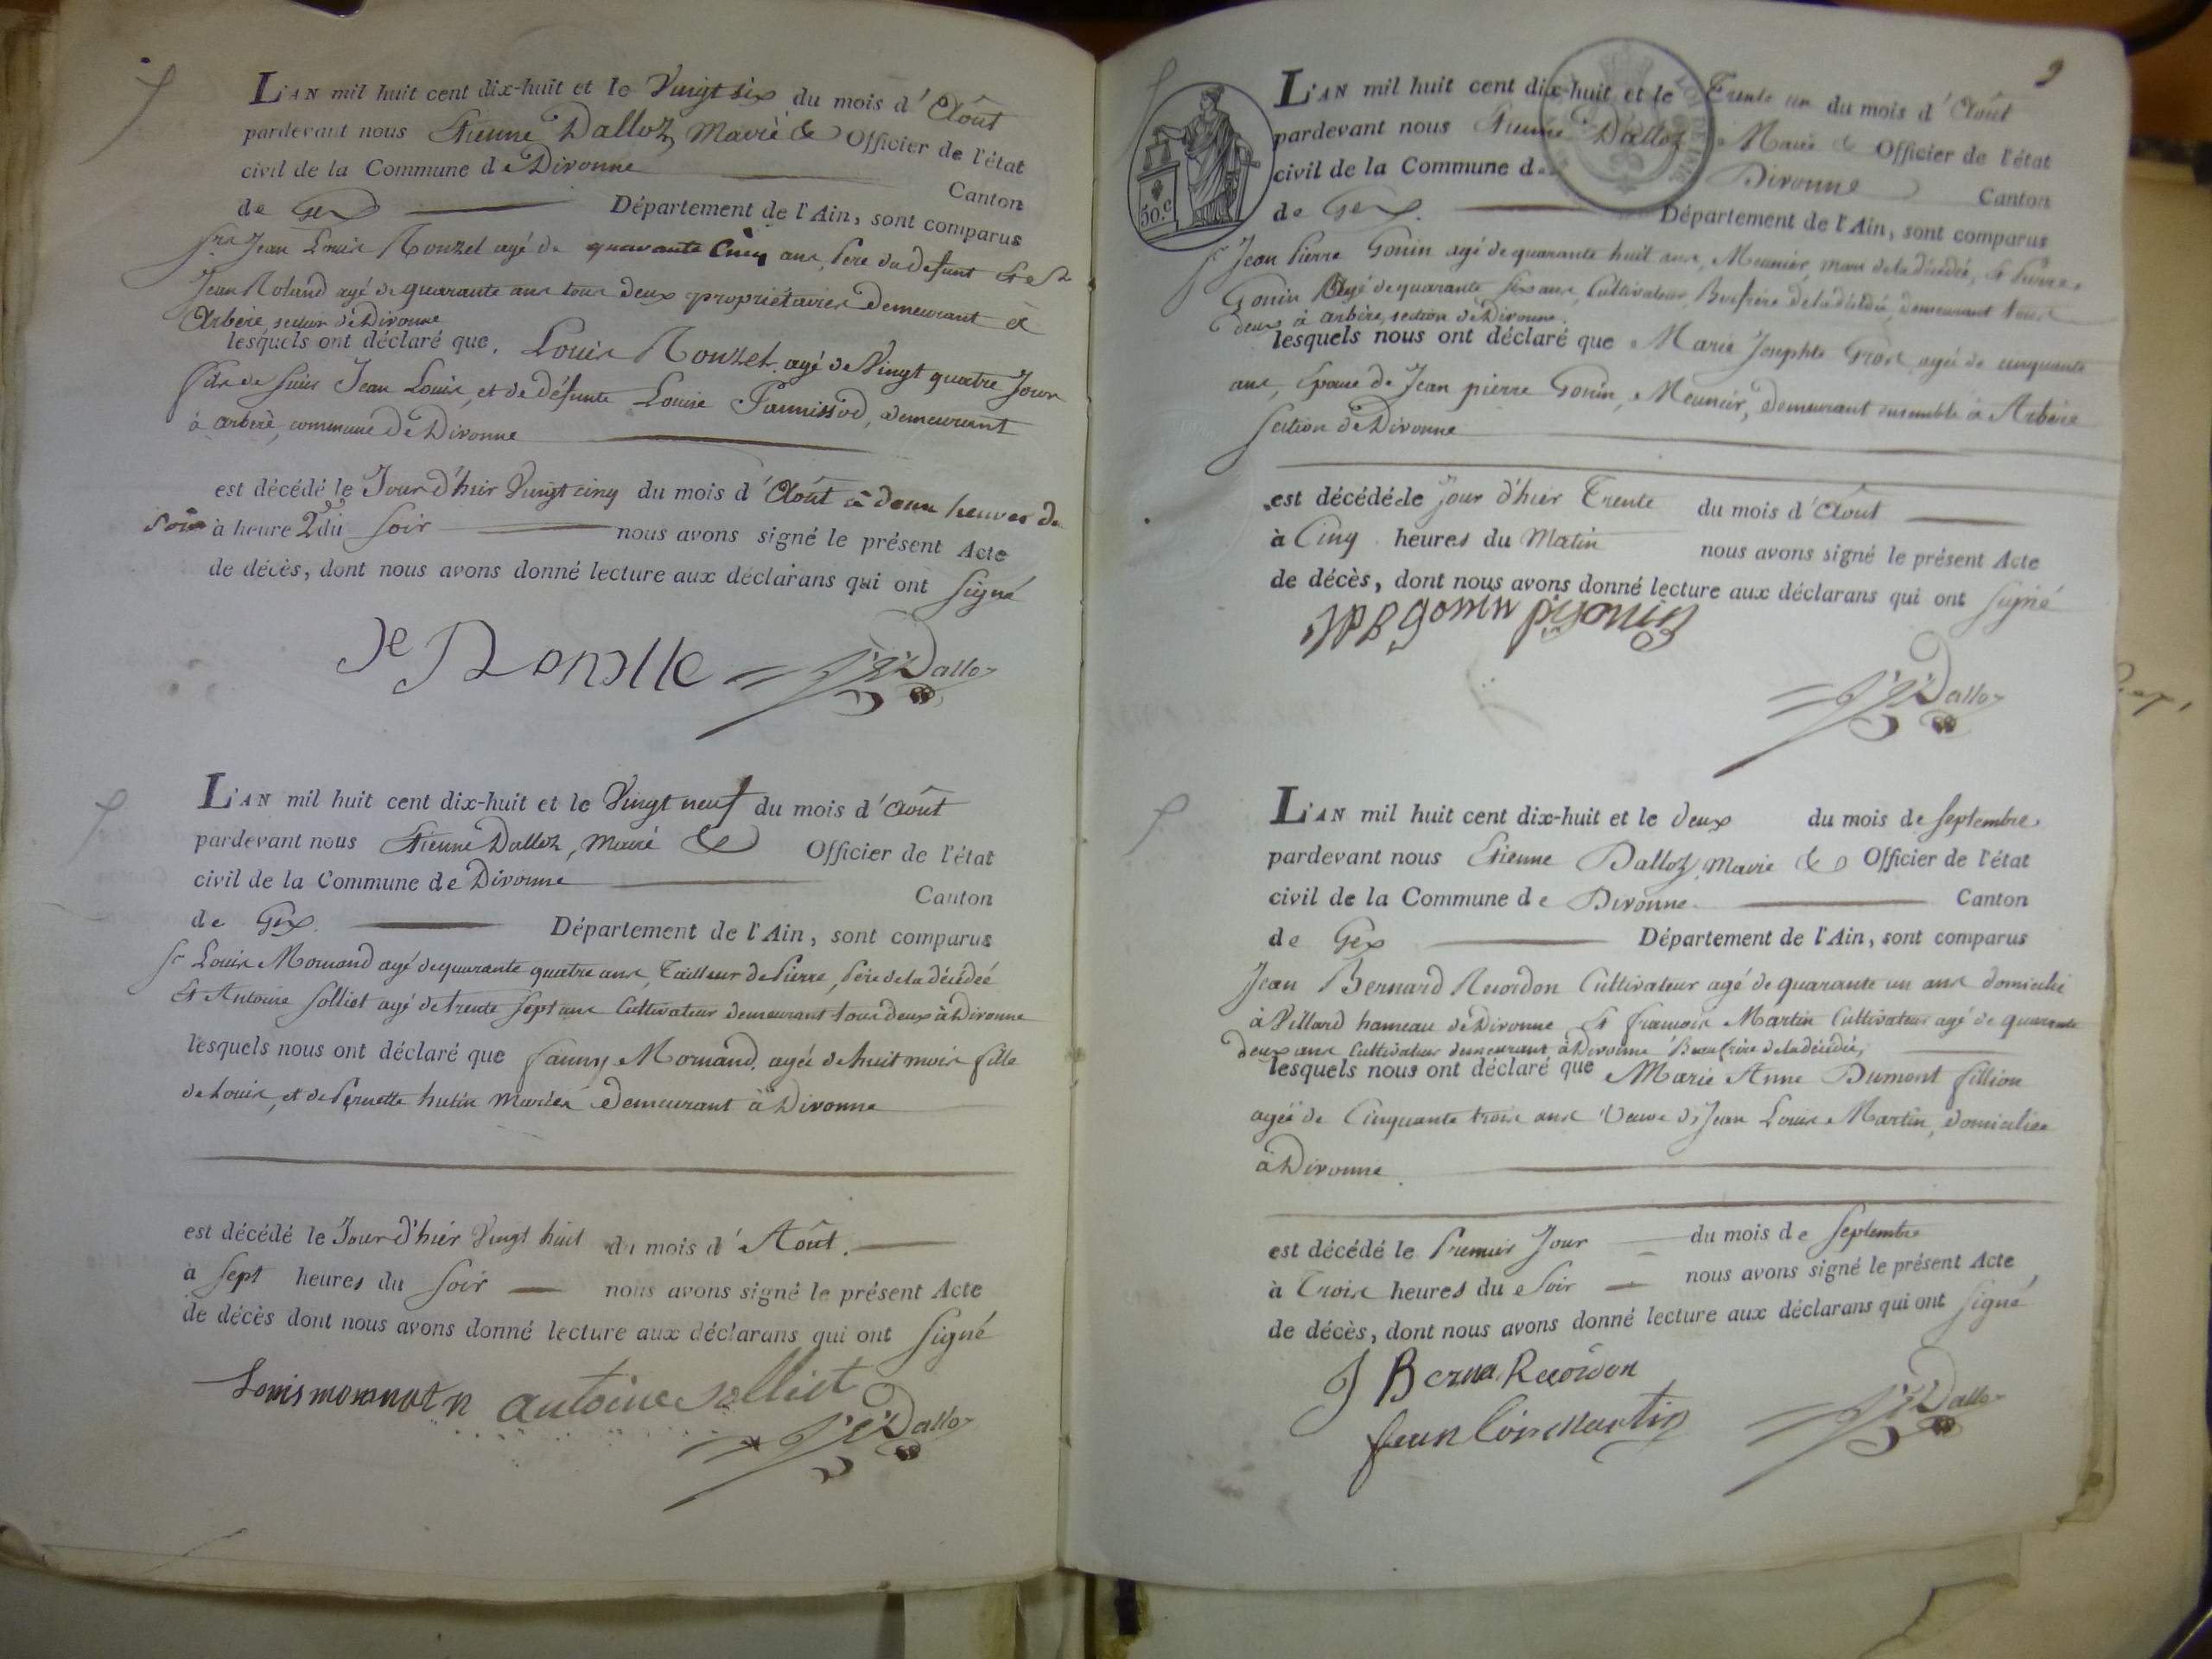 L'AN mil huit cent dix-huit et le Vingt six du mois d'Août
pardevant nous Etienne Dalloz, Maire & Officier de l'état
civil de la Commune de Divonne Canton
de Gex Département de l'Ain, sont comparus
Sr. Jean Louis Rouzet agé de quarante Cinq ans, Pere du defunt Et Sr
Jean Roland agé de quarante ans tous deux propriétaires Demeurant à
Arbère, section de Divonne
lesquels ont déclaré que, Louis Rouzet, agé de Vingt quatre Jours
fils de Jean Louis, et de défunte Louise demeurant
à arbère, commune de Divonne
est décédé le Jour d'hier Vingt cinq du mois d'Août à deux heures du
soir à heure 2 du Soir nous avons signé le présent Acte
de décès, dont nous avons donné lecture aux déclarans qui ont Signé
Dalloz
L'AN mil huit cent dix-huit et le Vingt neuf du mois d'Août
pardevant nous Etienne Dalloz, Maire & Officier de l'état
civil de la Commune de Divonne Canton
de Gex. Département de l'Ain, sont comparus
Sr Louis Mornand agé de quarante quatre ans, Tailleur de Pierre, Père de la décédée
Et Antoine Solliet agé de trente Sept ans Cultivateur demeurant tous deux à Divonne
lesquels nous ont déclaré que fanny Mornand, agée de huit mois fille
de Louis, et de Pernette hutin Mariés demeurant à Divonne
est décédé le Jour d'hier Vingt huit du mois d'Août.
à Sept heures du Soir nous avons signé le présent Acte
de décès dont nous avons donné lecture aux déclarans qui ont Signé
Louis antoine Solliet
Dalloz
9
50.c
L'AN mil huit cent dix-huit et le Trente un du mois d'Août
pardevant nous Etienne Dalloz Maire & Officier de l'état
civil de la Commune de Divonne Canton
de Gex. Département de l'Ain, sont comparus
Sr Jean Pierre Gonin agé de quarante huit ans, Meunier, mari de la décédée, Et Pierre
Gonin Agé de quarante Six ans, Cultivateur, Beaufrère de la décédée, demeurant tous
deux à arbère, section de Divonne.
lesquels nous ont déclaré que Marie Josephte Gros, agée de cinquante
ans, Epouse de Jean pierre Gonin, Meunier, demeurant ensemble à Arbère
Section de Divonne
est décédée le jour d'hier Trente du mois d'Août
à Cinq heures du Matin nous avons signé le présent Acte
de décès, dont nous avons donné lecture aux déclarans qui ont Signé
gonin p gonin
Dalloz
L'AN mil huit cent dix-huit et le deux du mois de Septembre
pardevant nous Etienne Dalloz, Maire & Officier de l'état
civil de la Commune de Divonne Canton
de Gex Département de l'Ain, sont comparus
Jean Bernard Recordon Cultivateur agé de quarante un ans domicilié
à Villard hameau de Divonne Et francois Martin Cultivateur agé de quarante
deux ans Cultivateur demeurant à Divonne Beaufrère de la décédée,
lesquels nous ont déclaré que Marie Anne Dumont fillion
agée de Cinquante trois ans Veuve de Jean Louis Martin, domiciliée
à Divonne
est décédé le Premier Jour du mois de Septembre
à Trois heures du Soir nous avons signé le présent Acte
de décès, dont nous avons donné lecture aux déclarans qui ont Signé
J Berna Recordon
Martin
Dalloz